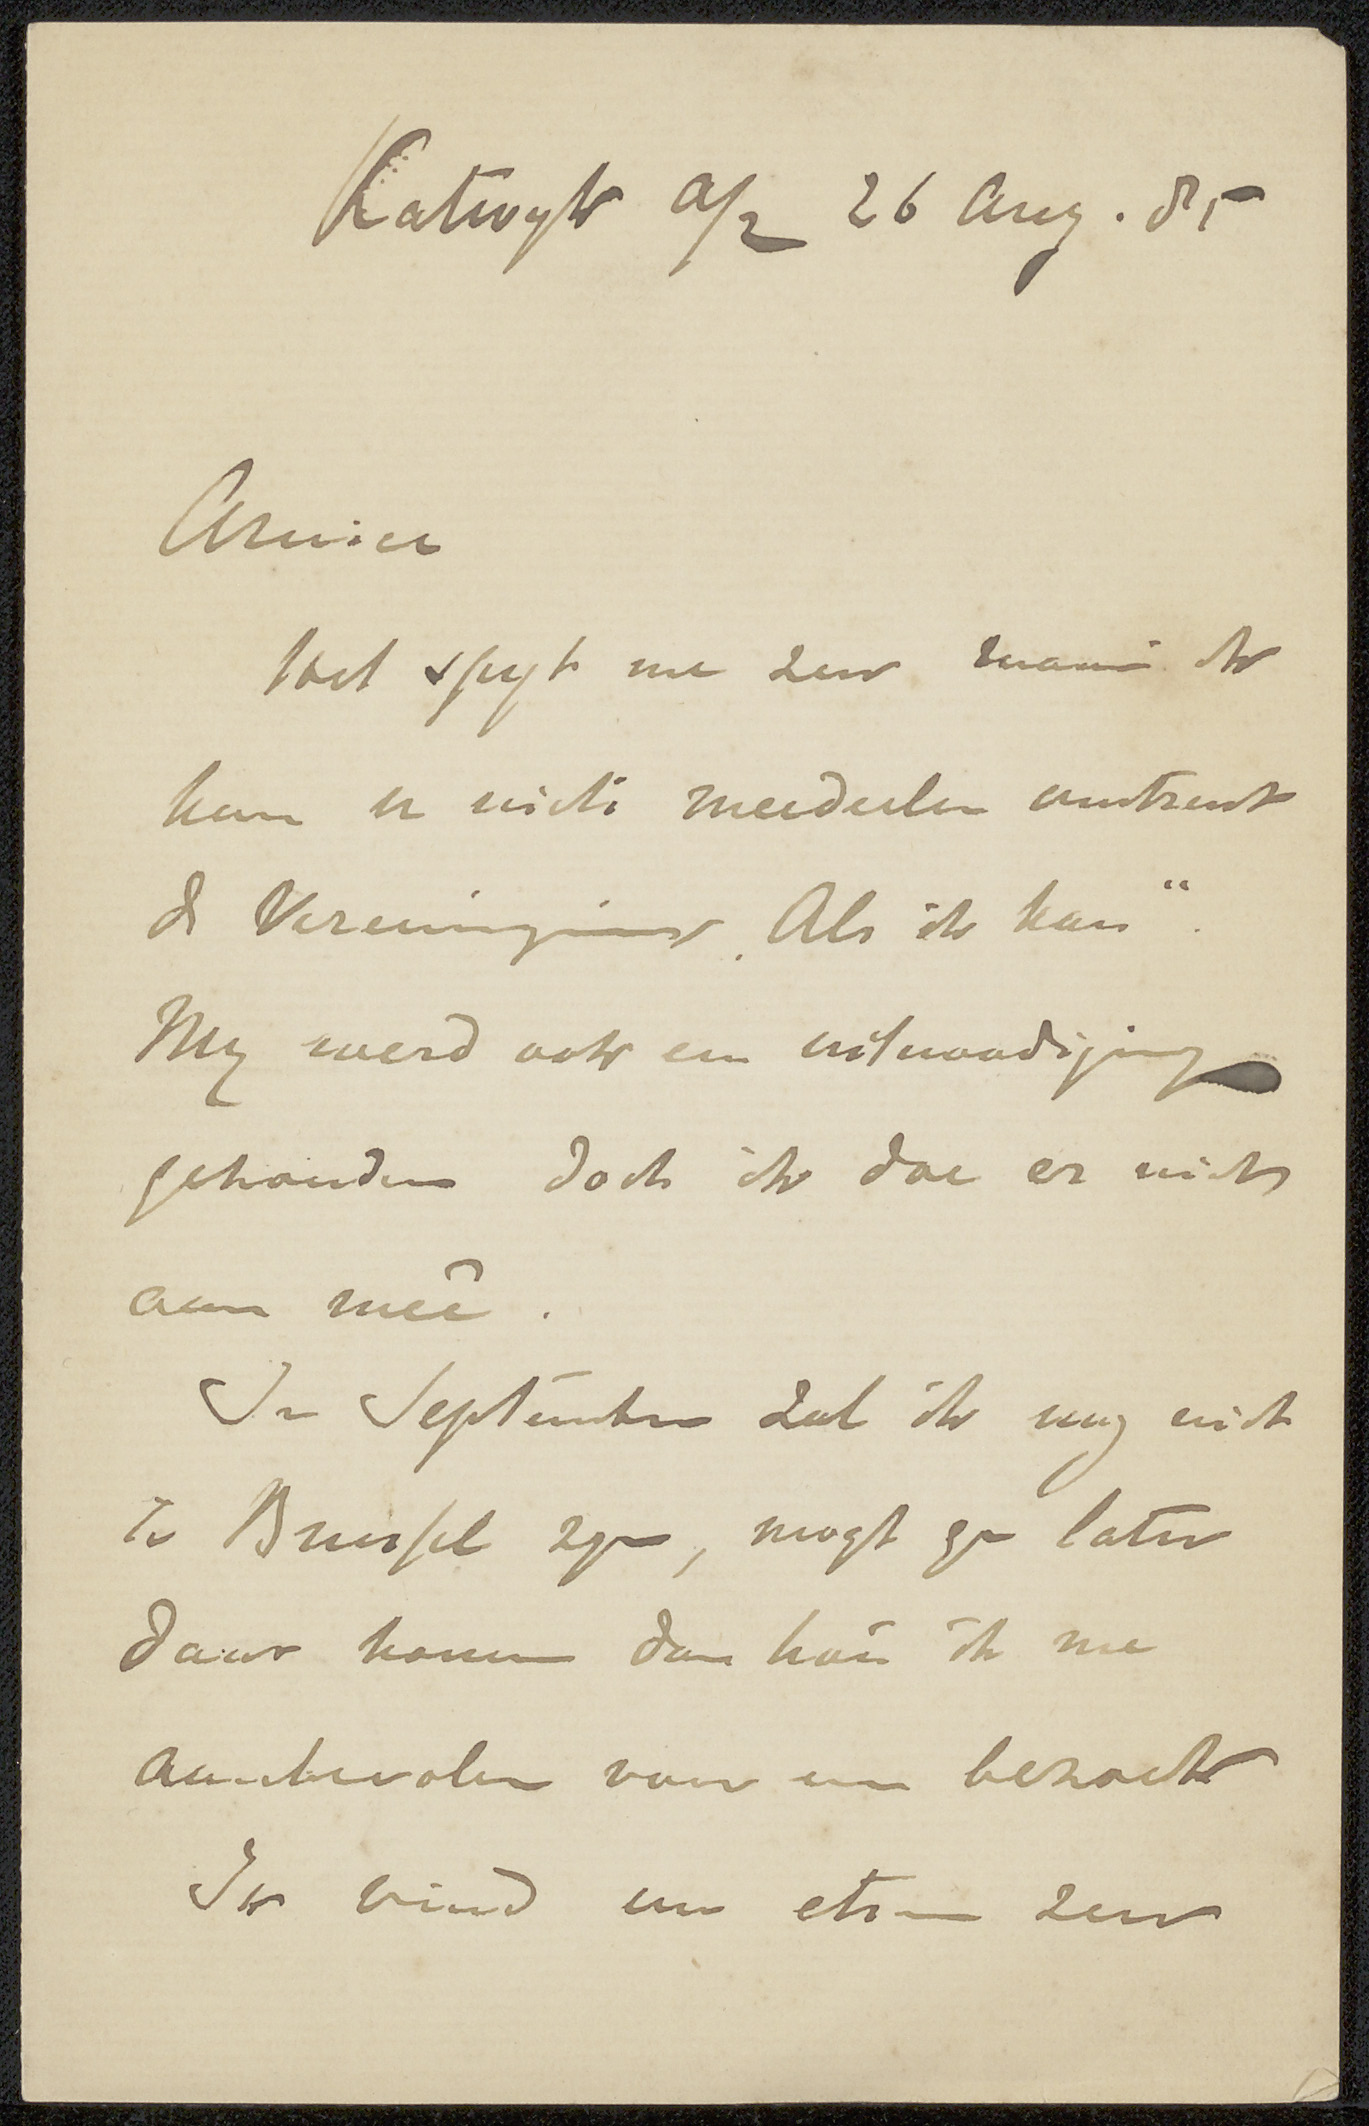 Katwyk a/z 26 Aug. 85
Amice
Het spyt me zeer maar ik
kan u niets meedeelen omtrent
de Vereeniging „Als ik kan“.
My werd ook een uitnoodiging
gehouden doch ik doe er niets
aan meê.
In September zal ik nog niet
te Brussel zyn, mogt ge later
daar komen dan hou ik me
aanbevolen voor een bezoek
Ik vind uw etsen zeer